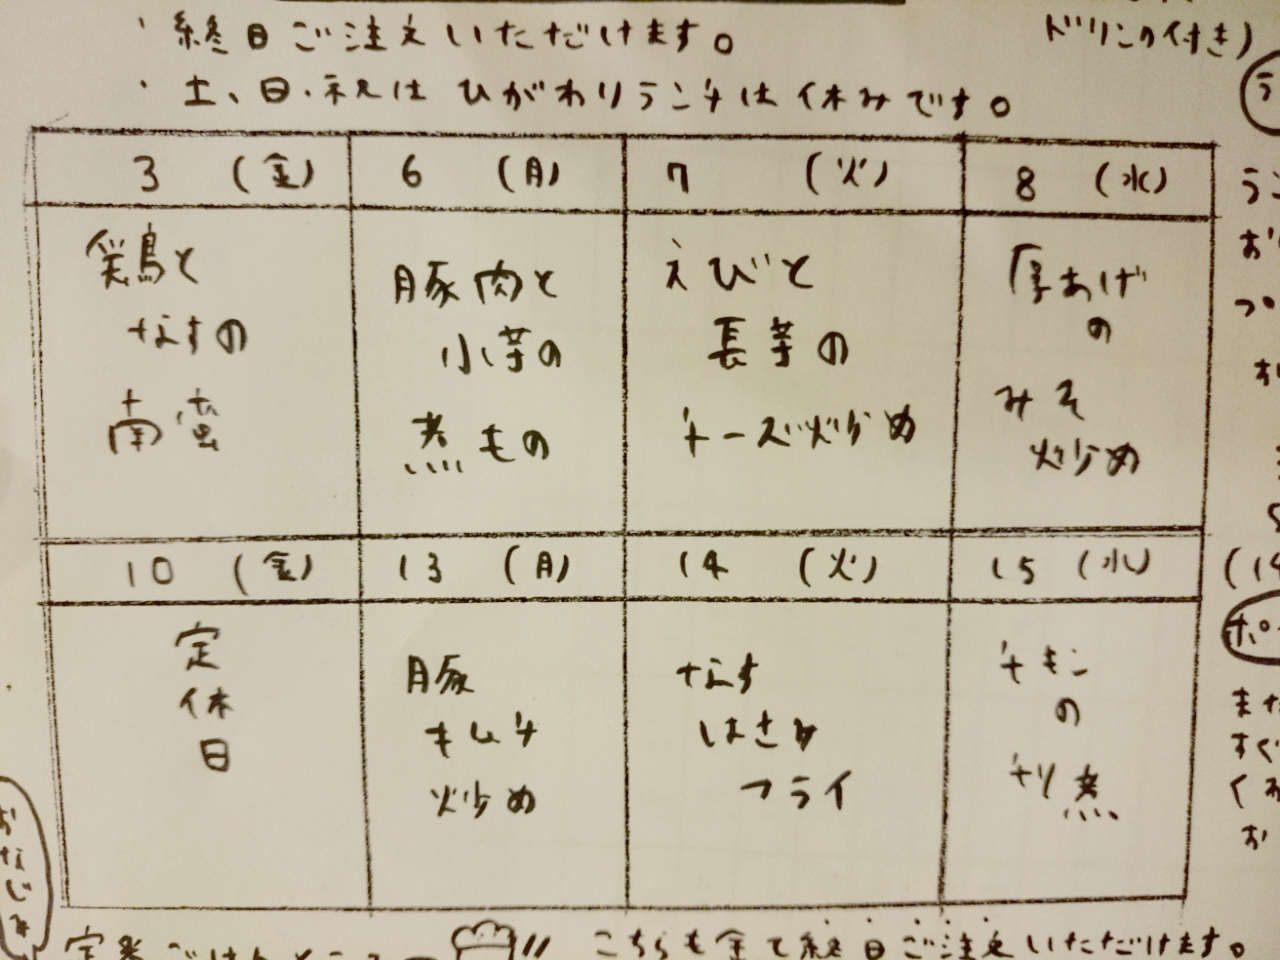 ・終日ご注文いただけます。
ドリンク付き)
・土、日、祝はひがわりランチは休みです。
3 (金)
6 (月)
7 (火)
8 (水)
鶏と
なすの
南蛮
豚肉と
小芋の
煮もの
えびと
長芋の
チーズ炒め
厚あげ
の
みそ
炒め
10 (金)
13 (月)
14 (火)
15 (水)
定
休
日
豚
キムチ
炒め
なす
はさみ
フライ
チキン
の
チリ煮
おなじみ
定番ごはん
こちらも全て終日ご注文いただけます。